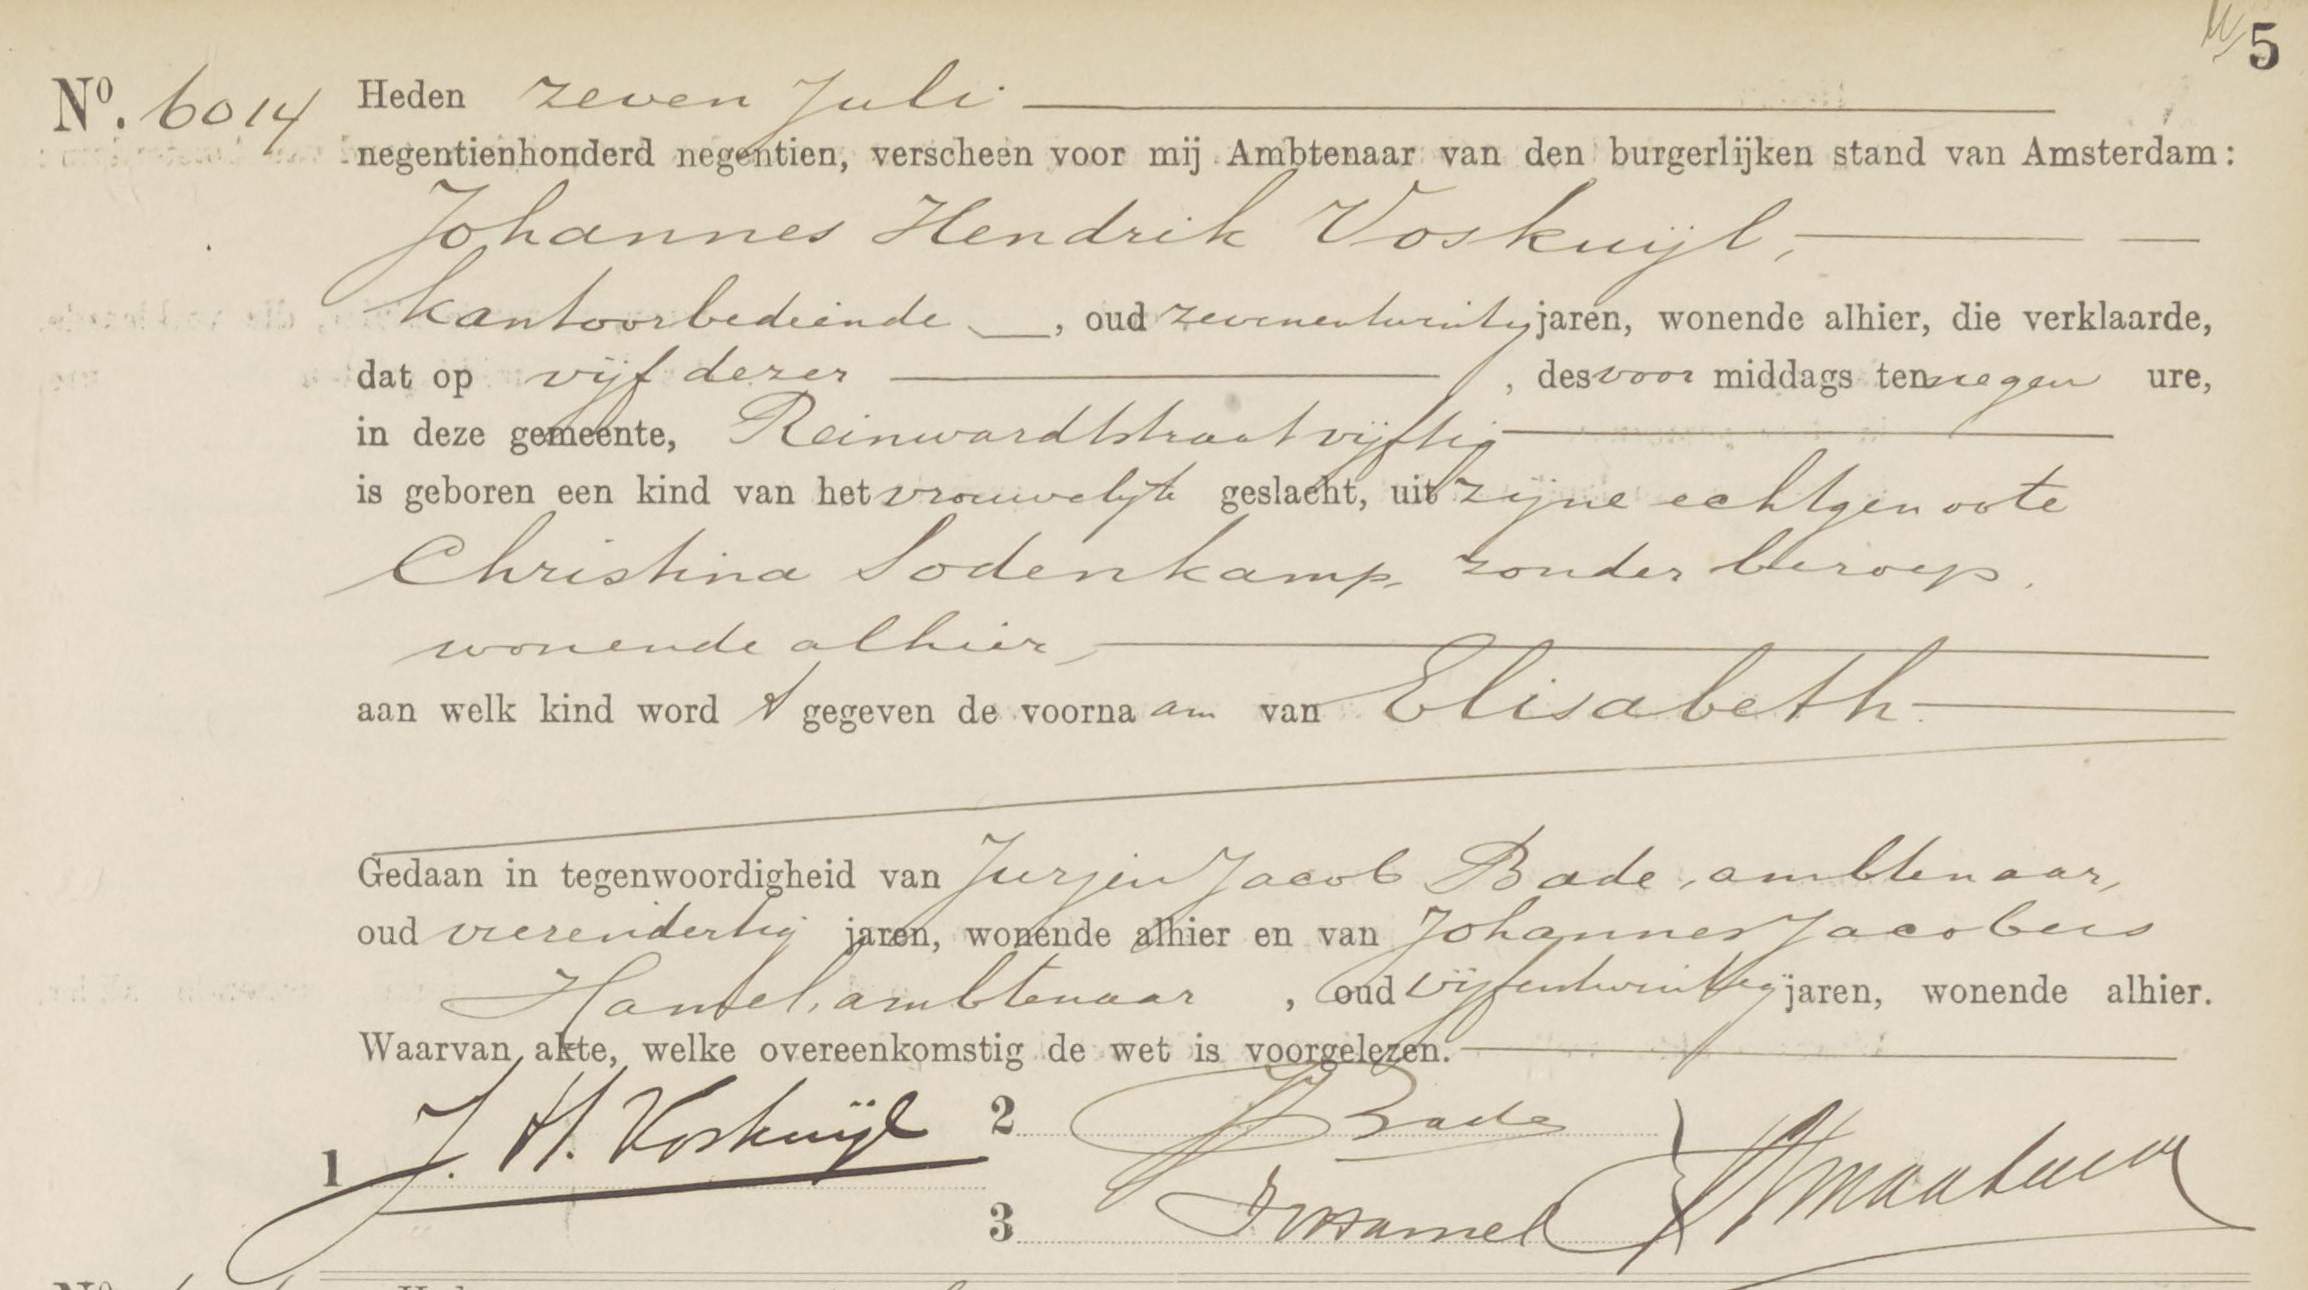 5
Nº. 6014 Heden zeven Juli
negentienhonderd negentien, verscheen voor mij Ambtenaar van den burgerlijken stand van Amsterdam:
Johannes Hendrik Voskuijl,
kantoorbediende, oud zevenentwintig jaren, wonende alhier, die verklaarde,
dat op vijf dezer, des voor middags ten negen ure,
in deze gemeente, Reinwardtstraat vijftig
is geboren een kind van het vrouwelijk geslacht, uit zijne echtgenoote
Christina Sodenkamp, zonder beroep,
wonende alhier,
aan welk kind word t gegeven de voorna am van Elisabeth
Gedaan in tegenwoordigheid van Jurjen Jacob Bade, ambtenaar,
oud vierendertig jaren, wonende alhier en van Johannes Jacobus
Hamel, ambtenaar, oud vijfentwintig jaren, wonende alhier.
Waarvan akte, welke overeenkomstig de wet is voorgelezen.
1 J. H. Voskuijl 2 JJBade
3 JJHamel
Nº. Heden